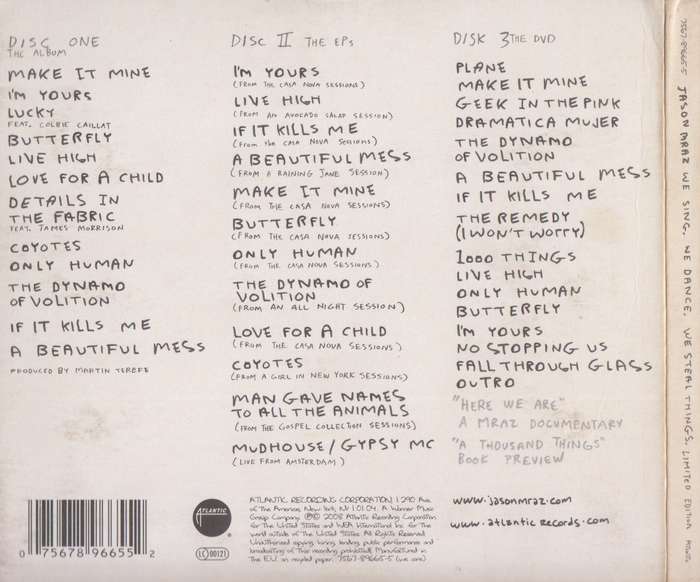 DISC ONE
THE ALBUM
MAKE IT MINE
I'M YOURS
LUCKY
FEAT. COLBIE CAILLAT
BUTTERFLY
LIVE HIGH
LOVE FOR A CHILD
DETAILS IN
THE FABRIC
FEAT. JAMES MORRISON
COYOTES
ONLY HUMAN
THE DYNAMO
OF VOLITION
IF IT KILLS ME
A BEAUTIFUL MESS
PRODUCED BY MARTIN TEREFE
DISC II THE EPs
I'M YOURS
(FROM THE CASA NOVA SESSIONS)
LIVE HIGH
(FROM AN AVOCADO SALAD SESSION)
IF IT KILLS ME
(FROM THE CASA NOVA SESSIONS)
A BEAUTIFUL MESS
(FROM A RAINING JANE SESSION)
MAKE IT MINE
(FROM THE CASA NOVA SESSIONS)
BUTTERFLY
(FROM THE CASA NOVA SESSIONS)
ONLY HUMAN
(FROM THE CASA NOVA SESSIONS)
THE DYNAMO OF
VOLITION
(FROM AN ALL NIGHT SESSION)
LOVE FOR A CHILD
(FROM THE CASA NOVA SESSIONS)
COYOTES
(FROM A GIRL IN NEW YORK SESSIONS)
MAN GAVE NAMES
TO ALL THE ANIMALS
(FROM THE GOSPEL COLLECTION SESSIONS)
MUDHOUSE / GYPSY MC
(LIVE FROM AMSTERDAM)
DISK 3 THE DVD
PLANE
MAKE IT MINE
GEEK IN THE PINK
DRAMATICA MUJER
THE DYNAMO
OF VOLITION
A BEAUTIFUL MESS
IF IT KILLS ME
THE REMEDY
(I WON'T WORRY)
1000 THINGS
LIVE HIGH
ONLY HUMAN
BUTTERFLY
I'M YOURS
NO STOPPING US
FALL THROUGH GLASS
OUTRO
"HERE WE ARE"
A MRAZ DOCUMENTARY
"A THOUSAND THINGS"
BOOK PREVIEW
0 75678 96655 2
ATLANTIC
LC 00121
ATLANTIC RECORDING CORPORATION, 1290 Ave
of the Americas, New York, NY 10104. A Warner Music
Group Company. ℗© 2008 Atlantic Recording Corporation
for the United States and WEA International Inc. for the
world outside of the United States. All Rights Reserved.
Unauthorized copying, hiring, lending, public performance and
broadcasting of this recording prohibited. Manufactured in
the E.U. on recycled paper. 7567-89665-5
www.jasonmraz.com
www.atlantic records.com
7567-89665-5 JASON MRAZ WE SING. WE DANCE. WE STEAL THINGS. LIMITED EDITION